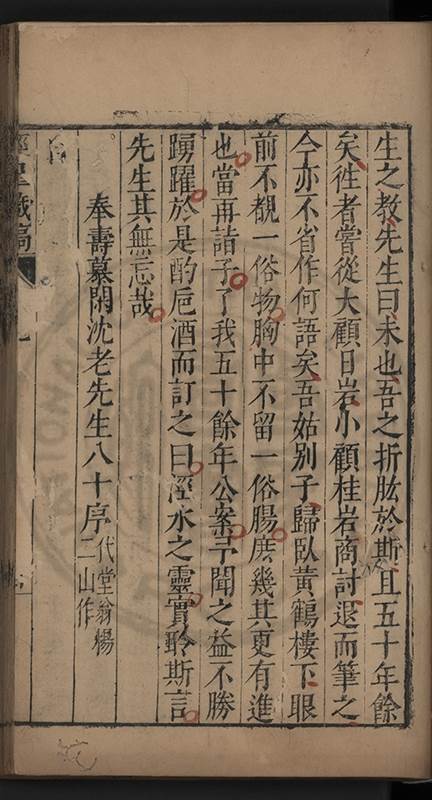 生之教先生曰未也吾之折肱於斯且五十年餘
矣徃者嘗從大顧日岩小顧桂岩商討退而筆之
今亦不省作何語矣吾姑别子歸臥黃鶴樓下眼
前不覩一俗物胸中不留一俗腸庶幾其更有進
也當再詣子了我五十餘年公案予聞之益不勝
踴躍於是酌巵酒而訂之曰涇水之靈實聆斯言
先生其無忘哉
奉壽慕閑沈老先生八十序代堂翁楊二山作
涇臯藏稿